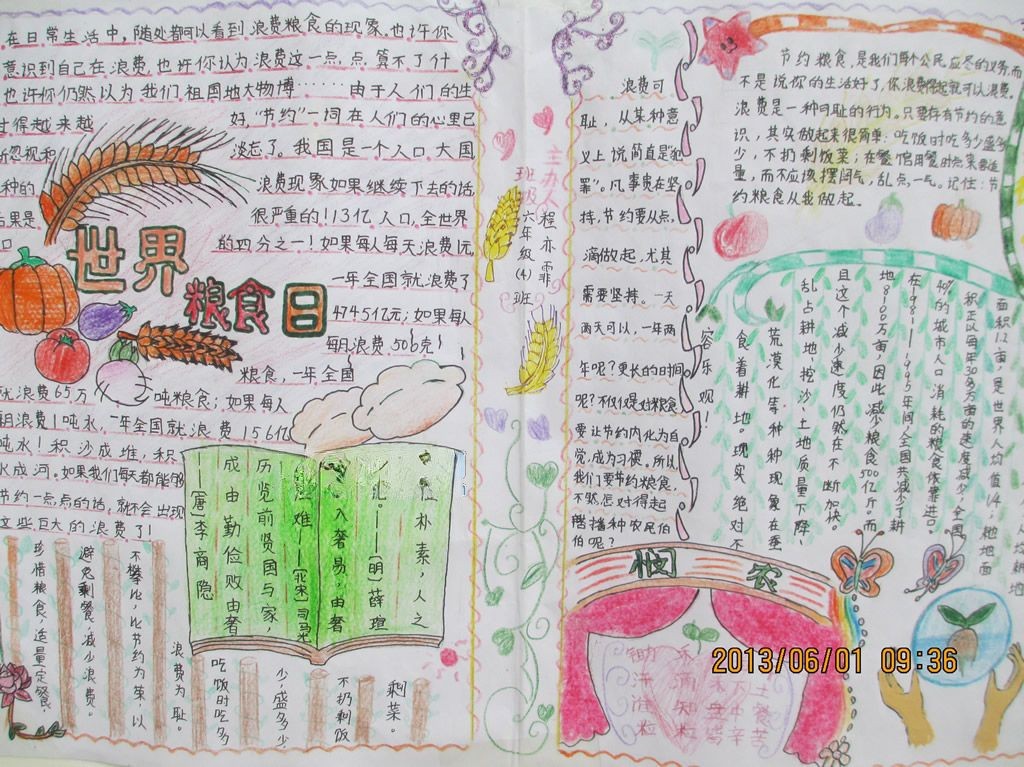 在日常生活中,随处都可以看到浪费粮食的现象.也许你
意识到自己在浪费,也许你认为浪费这一点,点,算不了什
也许你仍然以为我们祖国地大物博……由于人们的生
过得越来越好,"节约"一词在人们的心里已
忽视和淡忘了。我国是一个人口大国
种的浪费现象如果继续下去的话
后果是很严重的!13亿人口,全世界
口的四分之一!如果每人每天浪费1元
一年全国就浪费了
4745亿元;如果每人
每月浪费506克
粮食,一年全国
就浪费65万吨粮食;如果每人
月浪费1吨水,一年全国就浪费156亿
吨水!积沙成堆,积
水成河。如果我们每天都能够
节约一点点的话,就不会出现
这些巨大的浪费了!
世界
粮食日
性朴素,人之
——[明]薛瑄
入奢易,由奢
难——[北宋]司马光
历览前贤国与家,
成由勤俭败由奢
——[唐]李商隐
珍惜粮食,适量定餐,
避免剩餐,减少浪费。
不攀比,以节约为荣,以
浪费为耻。
吃饭时吃多
少,盛多少
不扔剩饭
剩菜。
主办人
程亦霏
班级
六年级(4)班
浪费可
耻,从某种意
义上说简直是犯
罪"。凡事贵在坚
持,节约要从点,
滴做起,尤其
需要坚持。一天
两天可以,一年两
年呢?更长的时间
呢?不仅仅是对粮食
要让节约内化为自
觉,成为习惯。所以
我们要节约粮食,
不然怎对得起
播种农民伯
伯呢?
节约粮食,是我们每个公民应尽的义务,而
不是说你的生活好了,你浪费得起就可以浪费。
浪费是一种可耻的行为。只要存有节约的意
识,其实做起来很简单:吃饭时吃多少盛多
少,不扔剩饭菜;在餐馆用餐时点菜要适
量,而不应该摆阔气,乱点,一气。记住:节
约粮食从我做起。
面积1.2亩,是世界人均值1/4,耕地面
积正以每年30多万亩的速度减少,全国
40%的城市人口消耗的粮食依靠进口。
在1981——1995年间,全国共减少了耕
地8100万亩,因此减少粮食500亿斤。而
且这个减少速度仍然在不断加快。
乱占耕地,挖沙,土地质量下降,
荒漠化等种种现象在蚕
食着耕地,现实绝对不
容乐观!
悯农
锄禾日当午
汗滴禾下土
2013/06/01 09:36